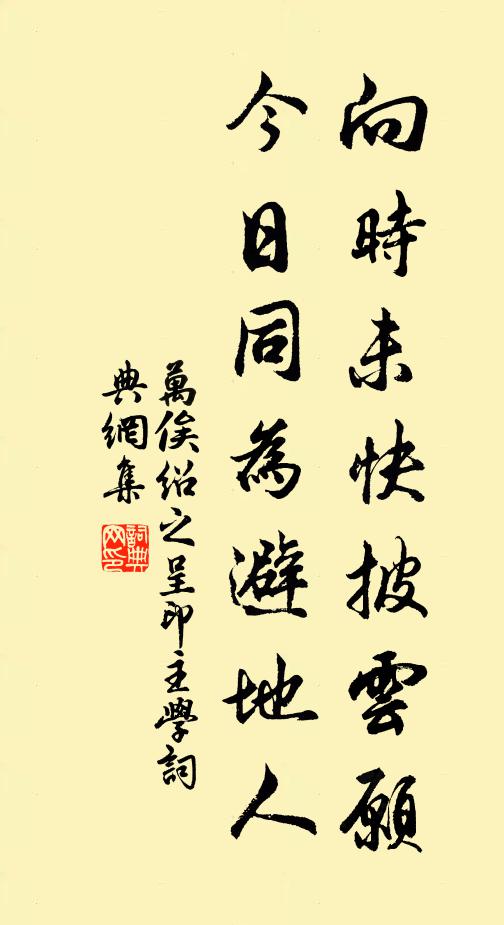 向時未快披雲願
今日同為避地人
萬俟紹之呈印主學詞
典網集
詞典
网印